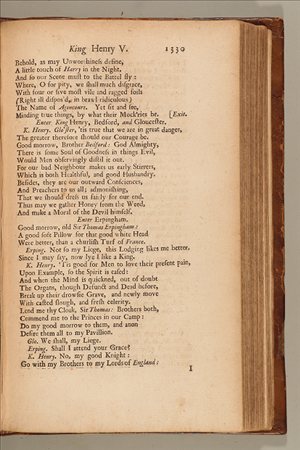 King Henry V. 1330
Behold, as may Unworthiness define,
A little touch of Harry in the Night.
And so our Scene must to the Battel fly:
Where, O for pity, we shall much disgrace,
With four or five most vile and ragged foils
(Right ill dispos'd, in brawl ridiculous)
The Name of Agincourt. Yet sit and see,
Minding true things, by what their Mock'ries be. [Exit.
Enter King Henry, Bedford, and Gloucester.
K. Henry. Glo'ster, 'tis true that we are in great danger,
The greater therefore should our Courage be.
Good morrow, Brother Bedford: God Almighty,
There is some Soul of Goodness in things Evil,
Would Men observingly distil it out.
For our bad Neighbour makes us early Stirrers,
Which is both Healthful, and good Husbandry.
Besides, they are our outward Consciences,
And Preachers to us all; admonishing,
That we should dress us fairly for our end.
Thus may we gather Honey from the Weed,
And make a Moral of the Devil himself.
Enter Erpingham.
Good morrow, old Sir Thomas Erpingham:
A good soft Pillow for that good white Head
Were better, than a churlish Turf of France.
Erping. Not so my Liege, this Lodging likes me better.
Since I may say, now lye I like a King.
K. Henry. 'Tis good for Men to love their present pain,
Upon Example, so the Spirit is eased:
And when the Mind is quickned, out of doubt
The Organs, though Defunct and Dead before,
Break up their drowsie Grave, and newly move
With casted slough, and fresh celerity.
Lend me thy Cloak, Sir Thomas: Brothers both,
Commend me to the Princes in our Camp:
Do my good morrow to them, and anon
Desire them all to my Pavillion.
Glo. We shall, my Liege.
Erping. Shall I attend your Grace?
K. Henry. No, my good Knight:
Go with my Brothers to my Lords of England:
I